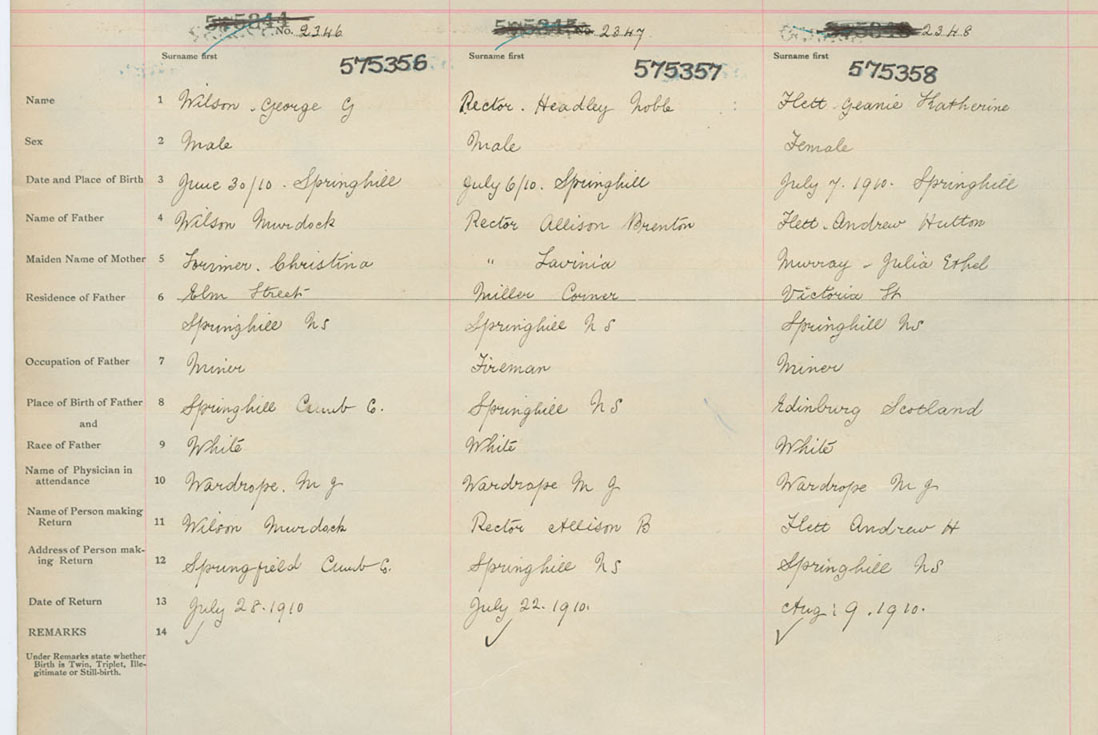 No. 2346 No. 2347 2348
Surname first Surname first Surname first
575356 575357 575358
Name 1 Wilson. George G Rector. Headley Noble : Flett. Geanie Katherine
Sex 2 Male Male Female
Date and Place of Birth 3 June 30/10. Springhill July 6/10. Springhill July 7. 1910. Springhill
Name of Father 4 Wilson Murdock Rector Allison Brenton Flett. Andrew Hutton
Maiden Name of Mother 5 Lorimer. Christina " Lavinia Murray - Julia Ethel
Residence of Father 6 Elm Street Miller Corner Victoria St
Springhill NS Springhill NS Springhill NS
Occupation of Father 7 Miner Fireman Miner
Place of Birth of Father 8 Springhill Cumb C. Springhill NS Edinburg Scotland
and
Race of Father 9 White White White
Name of Physician in
attendance 10 Wardrope. M J Wardrope M J Wardrope M J
Name of Person making
Return 11 Wilson Murdock Rector Allison B Flett Andrew H
Address of Person mak-
ing Return 12 Springfield Cumb C. Springhill NS Springhill NS
Date of Return 13 July 28. 1910 July 22. 1910. Aug: 9. 1910.
REMARKS 14
Under Remarks state whether
Birth is Twin, Triplet, Ille-
gitimate or Still-birth.